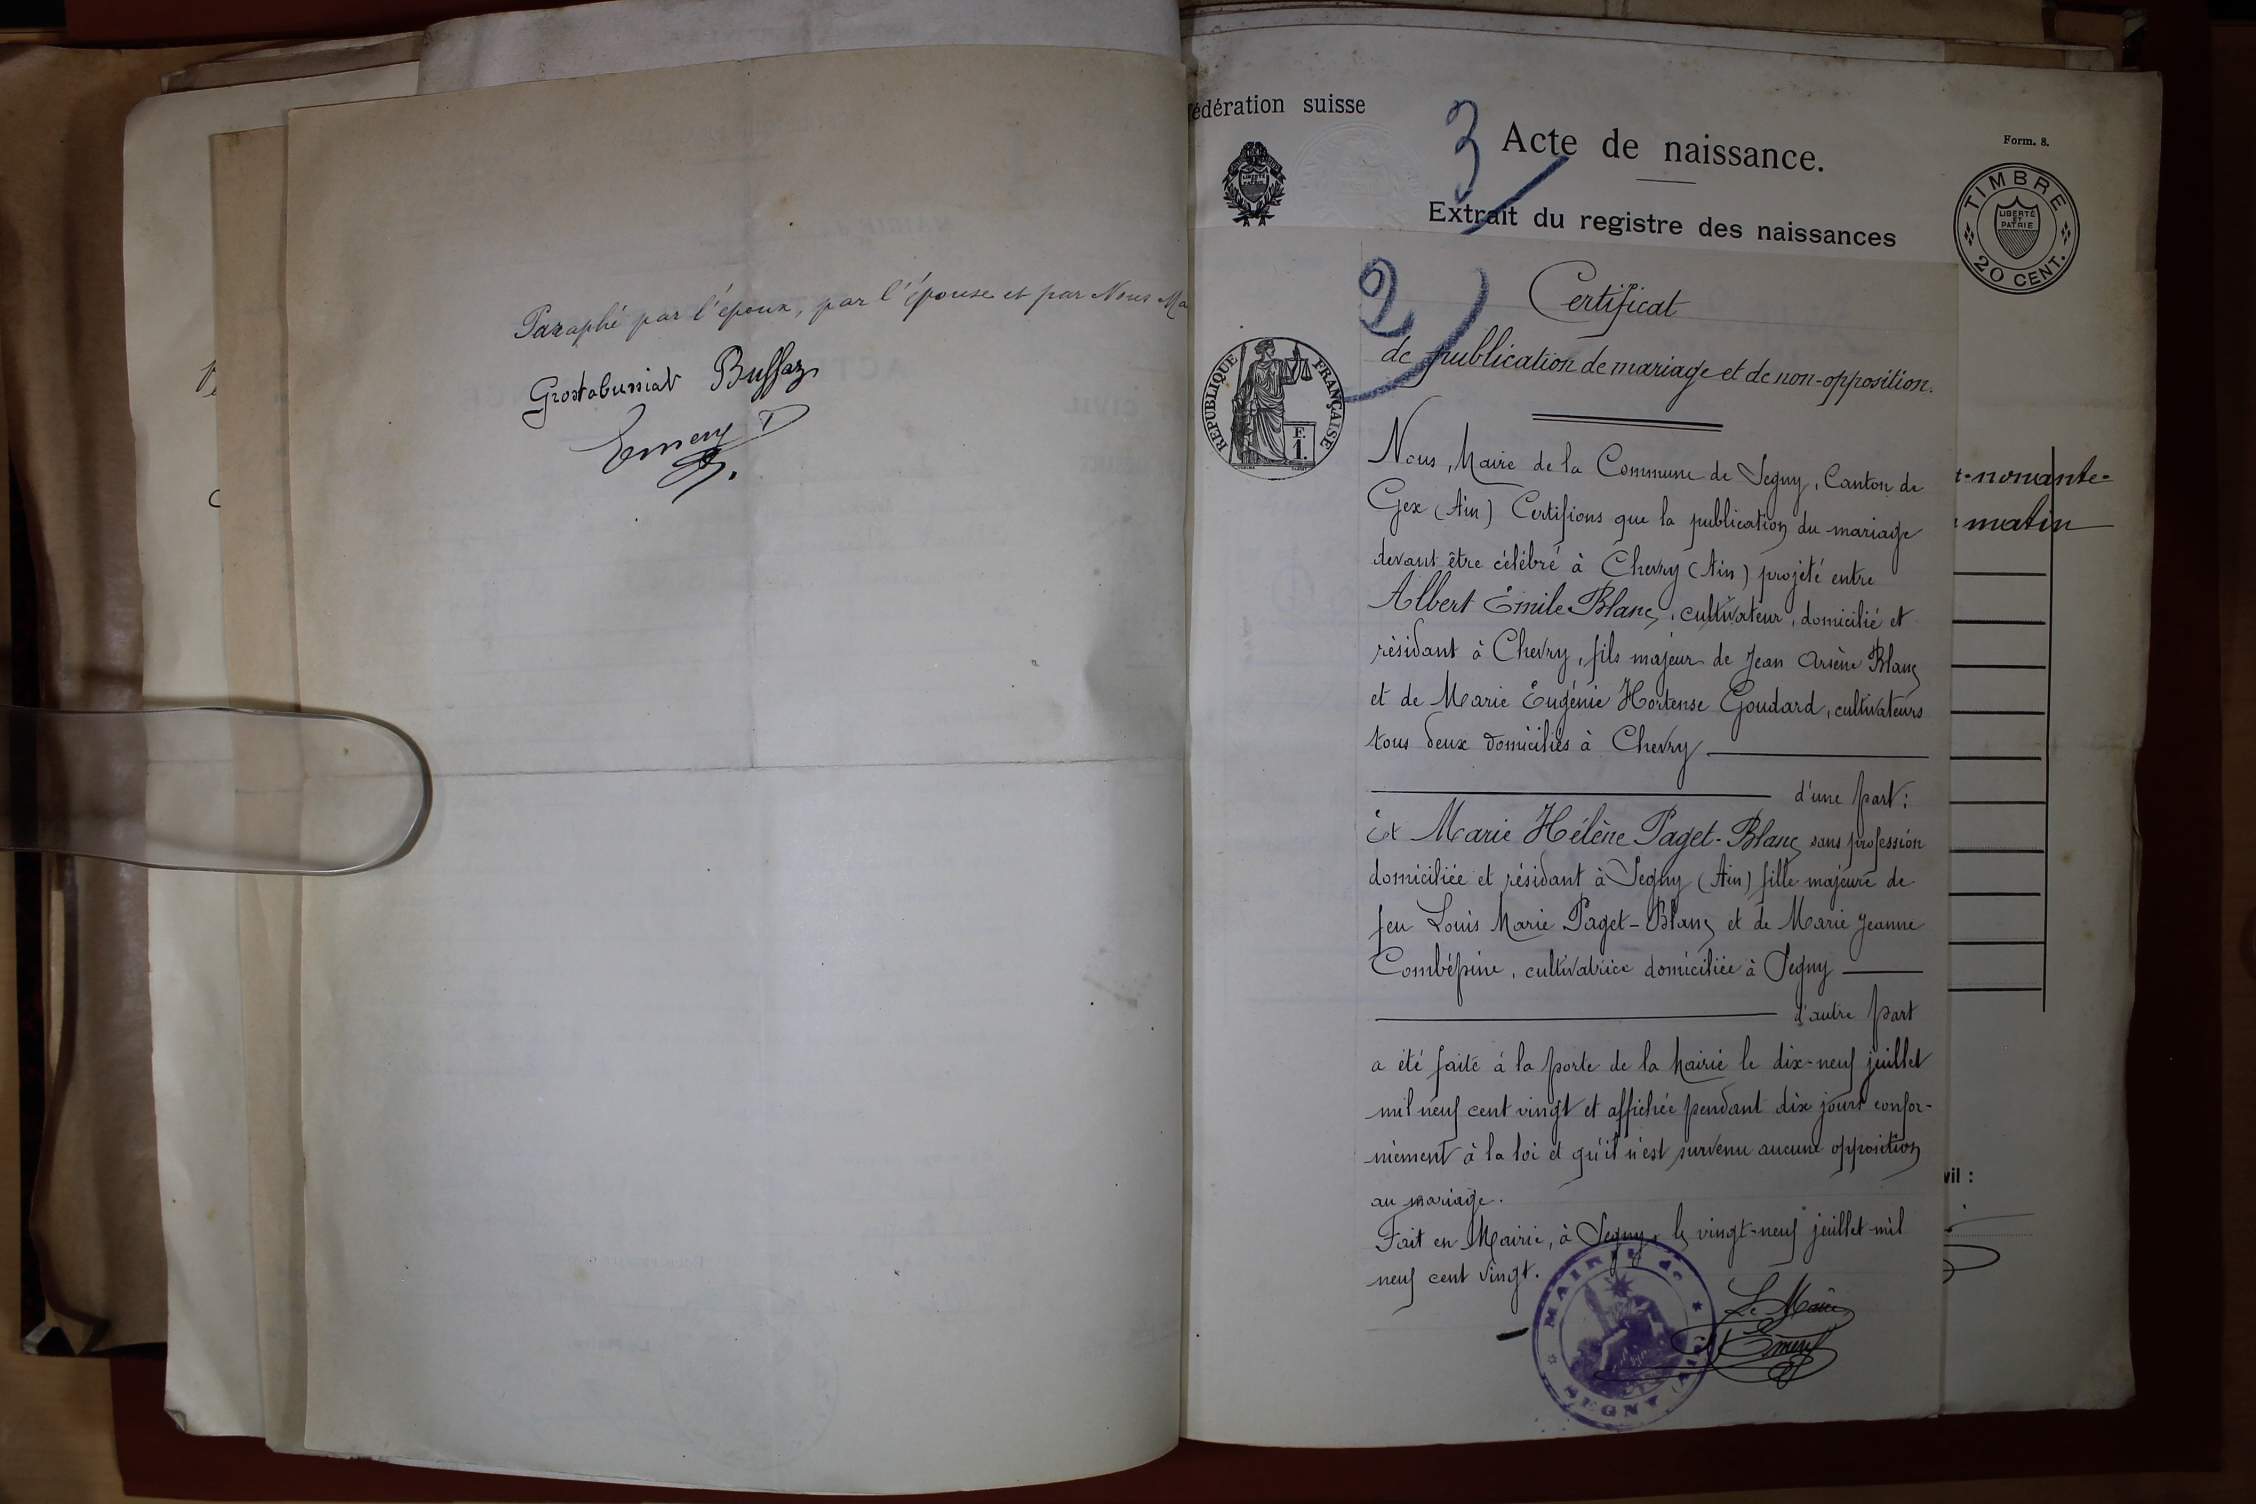 Paraphé par l'époux, par l'épouse et par Nous Ma
Grostabussiat Buffaz
Emery
édération suisse
3
Acte de naissance.
Form. 8.
Extrait du registre des naissances
TIMBRE
LIBERTÉ ET PATRIE
20 CENT.
2)
Certificat
de publication de mariage et de non-opposition.
RÉPUBLIQUE FRANÇAISE
F. 1.
Nous, Maire de la Commune de Segny, Canton de
Gex (Ain) Certifions que la publication du mariage
devant être célébré à Chevry (Ain) projeté entre
Albert Émile Blanc, cultivateur, domicilié et
résidant à Chevry, fils majeur de Jean Arsène Blanc
et de Marie Eugénie Hortense Goudard, cultivateurs
tous deux domiciliés à Chevry
d'une part:
Et Marie Hélène Paget-Blanc sans profession
domiciliée et résidant à Segny (Ain) fille majeure de
feu Louis Marie Paget-Blanc et de Marie Jeanne
Combépine, cultivatrice domiciliée à Segny
d'autre part
a été faite à la porte de la Mairie le dix-neuf juillet
mil neuf cent vingt et affichée pendant dix jours confor-
mément à la loi et qu'il n'est survenu aucune opposition
au mariage.
Fait en Mairie, à Segny, le vingt-neuf juillet mil
neuf cent vingt.
Le Maire
Emery
MAIRIE de SEGNY (AIN)
t-nonante-
matin
vil :